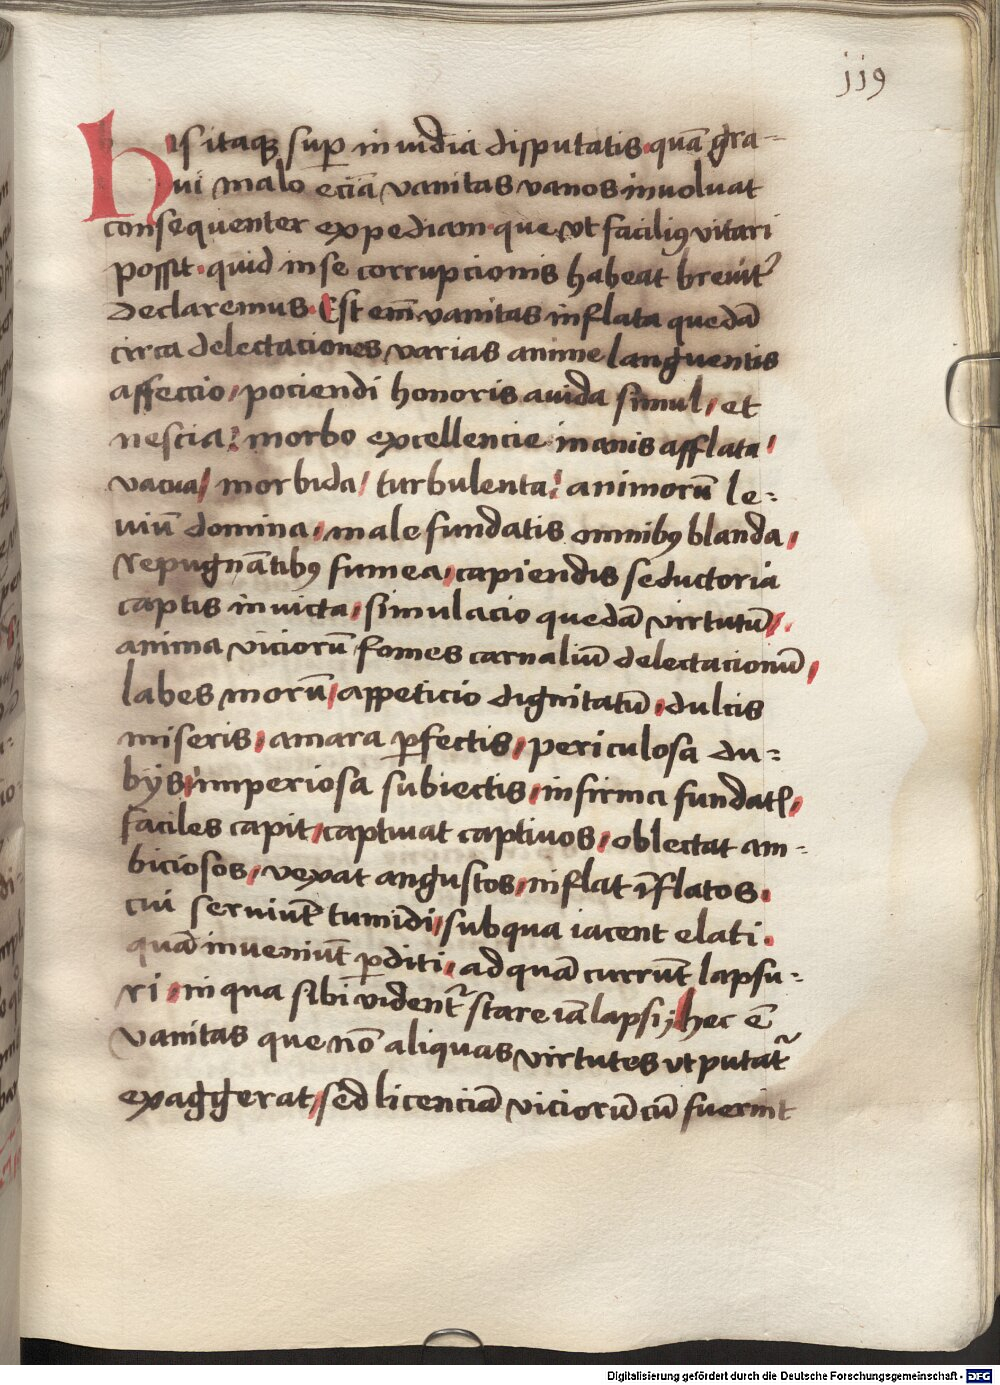 jj9
His itaqꝫ suꝑ inuidia disputatis quā gra-
ui malo eciā vanitas vanos inuoluat
consequenter expediam que vt faciliꝰ vitari
possit quid in se corrupcionis habeat breuit᷑
declaremus. Est em̄ vanitas inflata quedā
circa delectaciones varias anime languentis
affeccio / pociendi honoris auida simul / et
nescia / morbo excellencie inanis afflata /
vacua / morbida / turbulenta / animorū le-
uiū domina / male fundatis omnibꝰ blanda /
repugnātibꝰ fumea / capiendis seductoria
captis inuicta / simulacio quedā virtutū /.
anima viciorū fomes carnaliū delectacionū /
labes morū / appeticio dignitatū / dulcis
miseris / amara ꝑfectis / periculosa du-
bijs / imperiosa subiectis / infirma fundatꝭ /
faciles capit / captiuat captiuos / oblectat am-
biciosos / vexat angustos / inflat īflatos.
cui seruiūt tumidi / sub qua iacent elati.
quā inueniūt ꝑditi / ad quā currūt lapsu-
ri / in qua sibi vident᷑ stare iā lapsi; hec ē
vanitas que nō aliquas virtutes vt putat᷑
exaggerat / sed licenciā viciorū cū fuerint
Digitalisierung gefördert durch die Deutsche Forschungsgemeinschaft - DFG